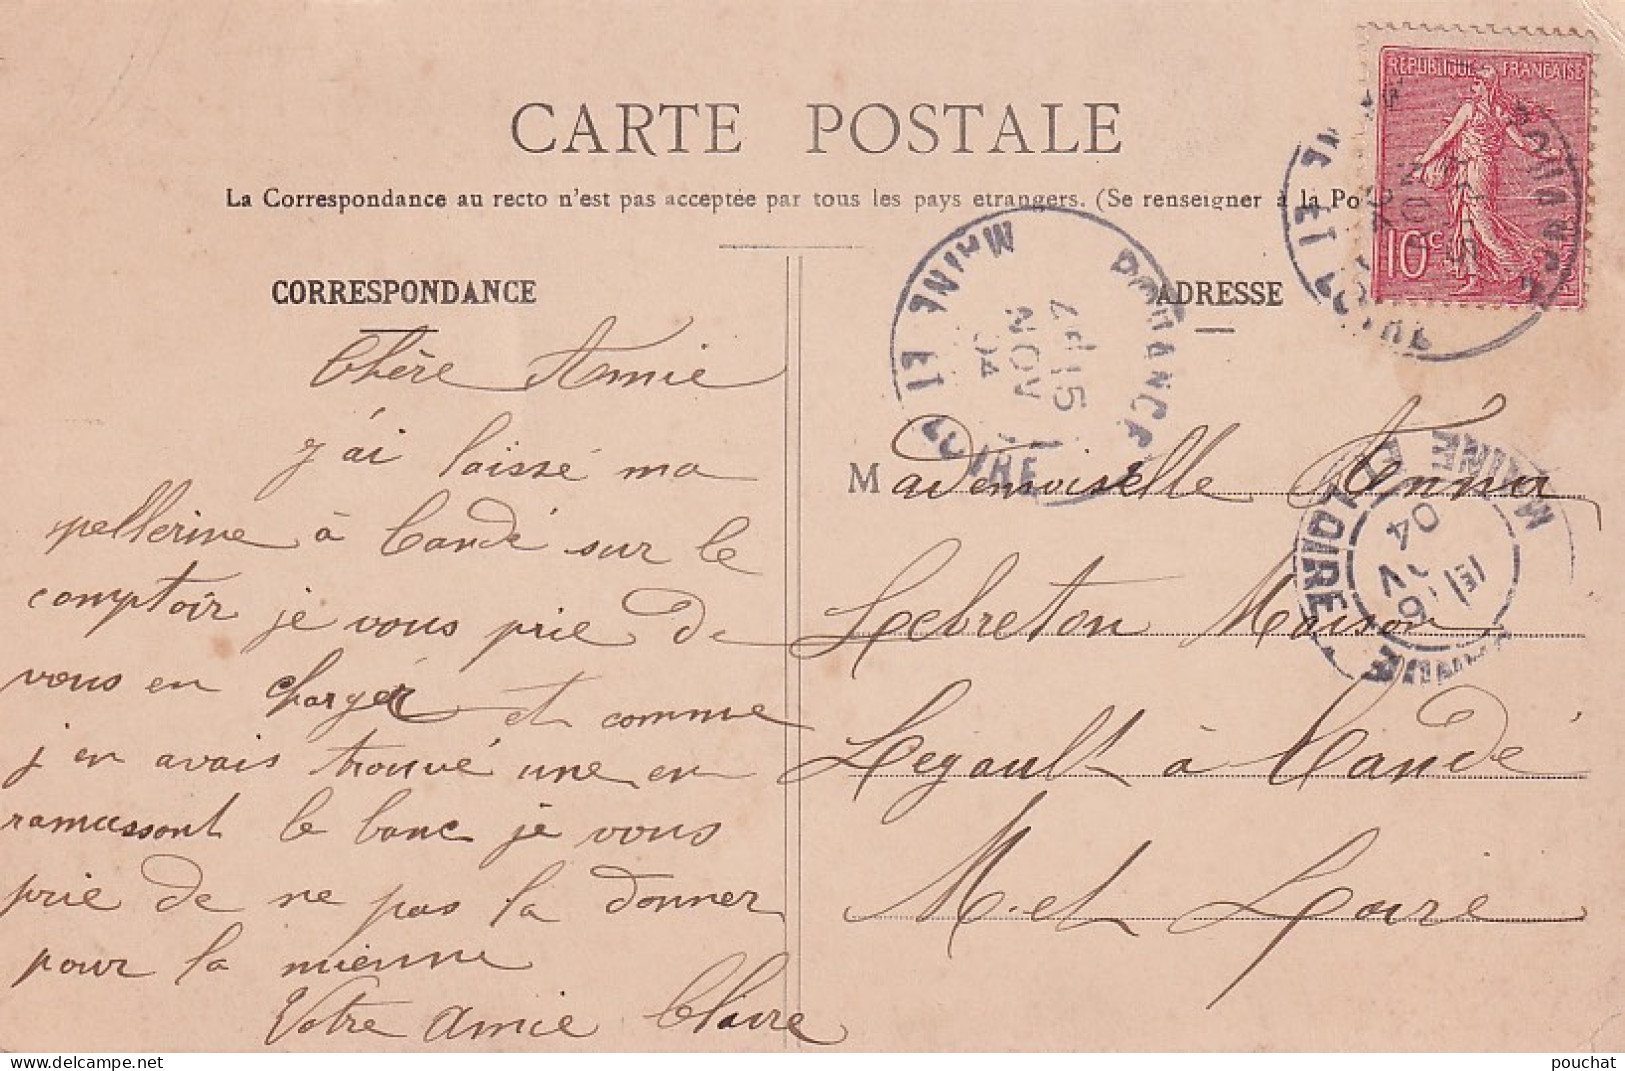 CARTE POSTALE
La Correspondance au recto n'est pas acceptée par tous les pays etrangers. (Se renseigner à la Po
CORRESPONDANCE
Chère Amie
j'ai laissé ma
pellerine à Candé sur le
comptoir je vous prie de
vous en charger et comme
j'en avais trouvé une en
ramassant le banc je vous
prie de ne pas la donner
pour la mienne
Votre amie Claire
ADRESSE
Mademoiselle Anna
Lebreton Maison
Legault à Candé
M. et Loire
REPUBLIQUE FRANÇAISE
10c
POUANCÉ
MAINE ET LOIRE
15
NOV
04
MAINE ET LOIRE
04
MAINE ET LOIRE
delcampe.net
pouchat